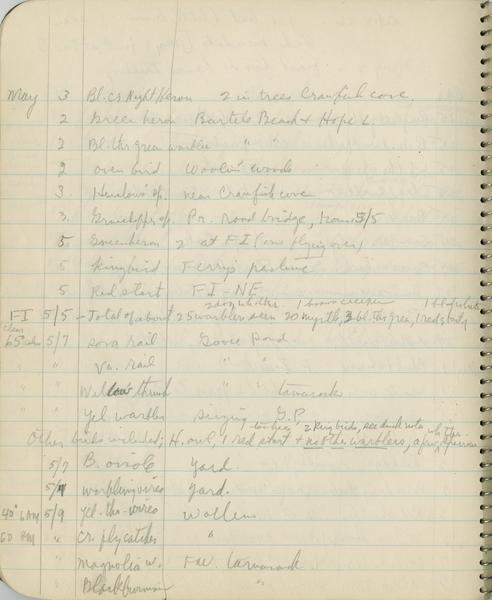 May 3 Bl. Cr. Night Heron 2 in trees Crawfish cove.
2 Green heron Bartels Beach & Hope L.
2 Bl. thr green warbler " "
2 oven bird Woolin' woods
3. Henslow's sp. near Crawfish cove
3. Grasshopper sp. Pr. road bridge, 5/5
5 Green heron 2 at FI (one flying over)
5 Kingbird Ferry's
5 Red start FI-NE
1 brown creeper
FI 5/5 - Total of about 25 warblers seen 20 myrtle, 3 bl. thr. green, 1 red start
clear
65° 5/7 sora rail Goose Pond
" " Va. rail " "
" " Willow thrush " " tamaracks
" " Yel warbler singing G.P.
towhee, 2 King birds,
Other birds included; H. owl, 1 red start + no other warblers, a few
5/7 B. oriole Yard.
5/7 warbling vireo Yard.
40° 6 AM 5/9 Yel. thr. vireo
60 PM " Cr. flycatcher "
" Magnolia w. tamarack
" Blackburnian "